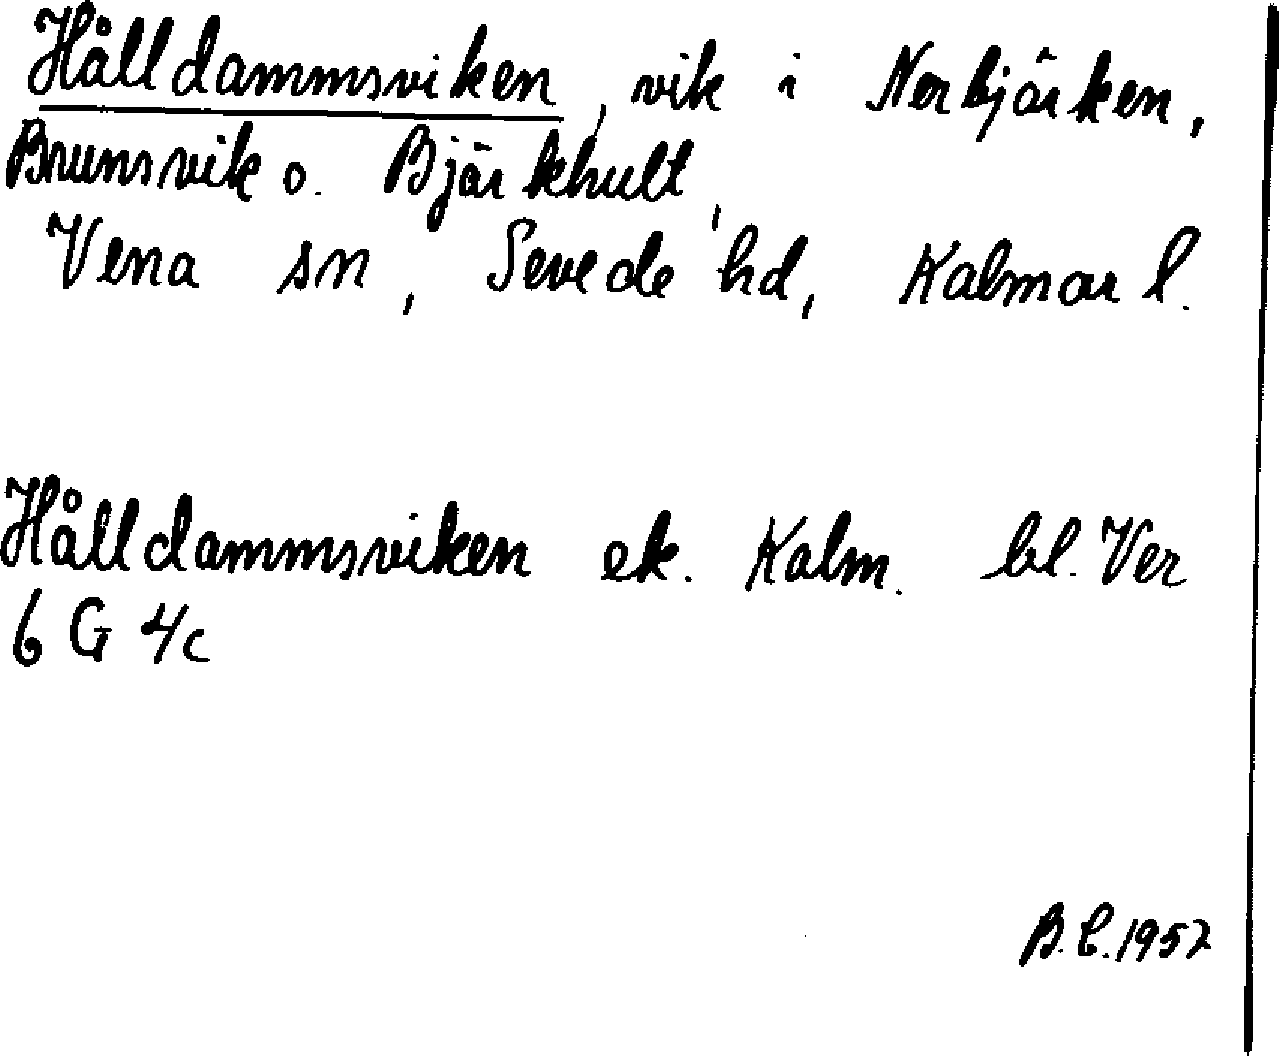 Hålldammsviken, vik i Nerbjärken,
Brunsvik o. Bjärkhult,
Vena sn, Sevede hd, Kalmar l.
Hålldammsviken ek. Kalm. bl. Ver
6 G 4c
B.C. 1957